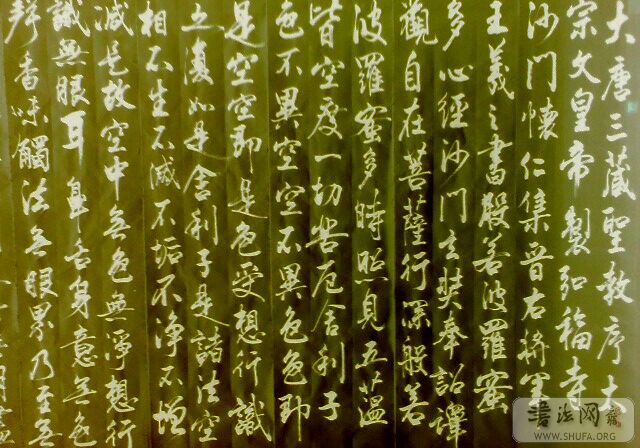 大唐三藏聖教序太
宗文皇帝製弘福寺
沙門懷仁集晉右將軍
王羲之書般若波羅蜜
多心經沙門玄奘奉詔譯
觀自在菩薩行深般若
波羅蜜多時照見五蘊
皆空度一切苦厄舍利子
色不異空空不異色色即
是空空即是色受想行識
亦復如是舍利子是諸法空
相不生不滅不垢不淨不增
減是故空中無色無淨想行
識無眼耳鼻舌身意無色
聲香味觸法無眼界乃至無
書法网
WWW.SHUFA.ORG